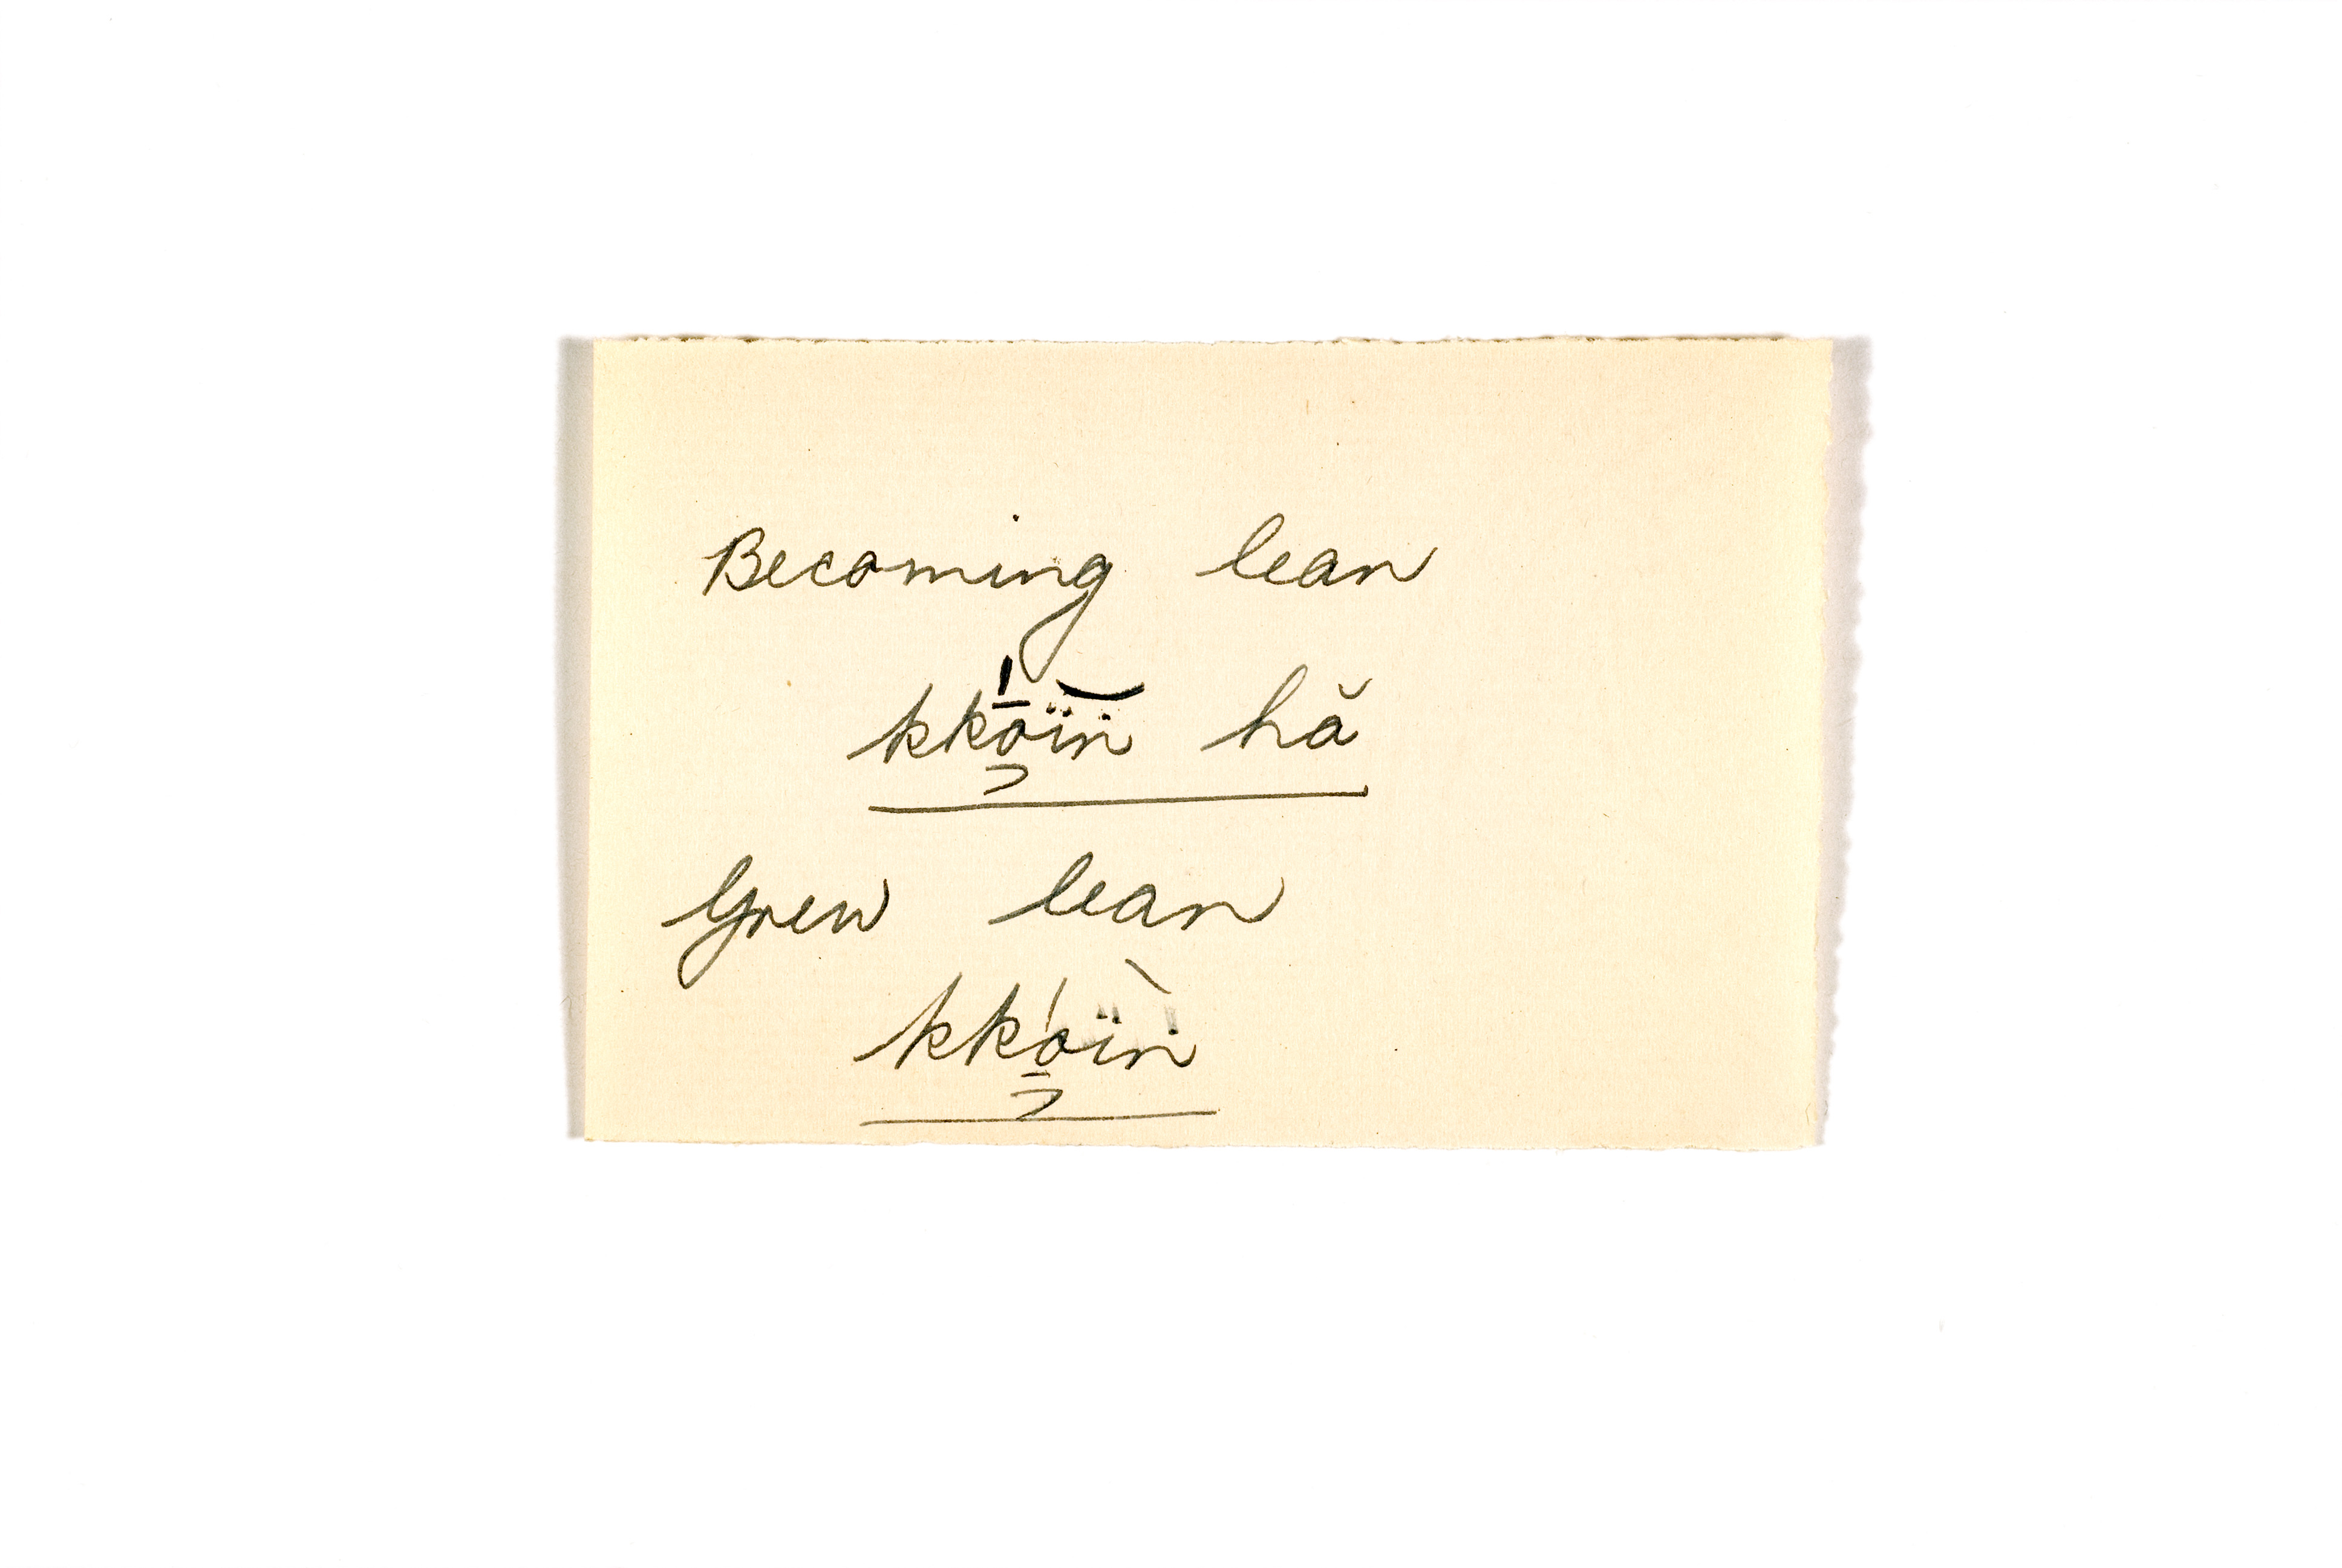 Becoming lean
kkṓïṅ hă
Grew lean
kkó̱ïṅ̀